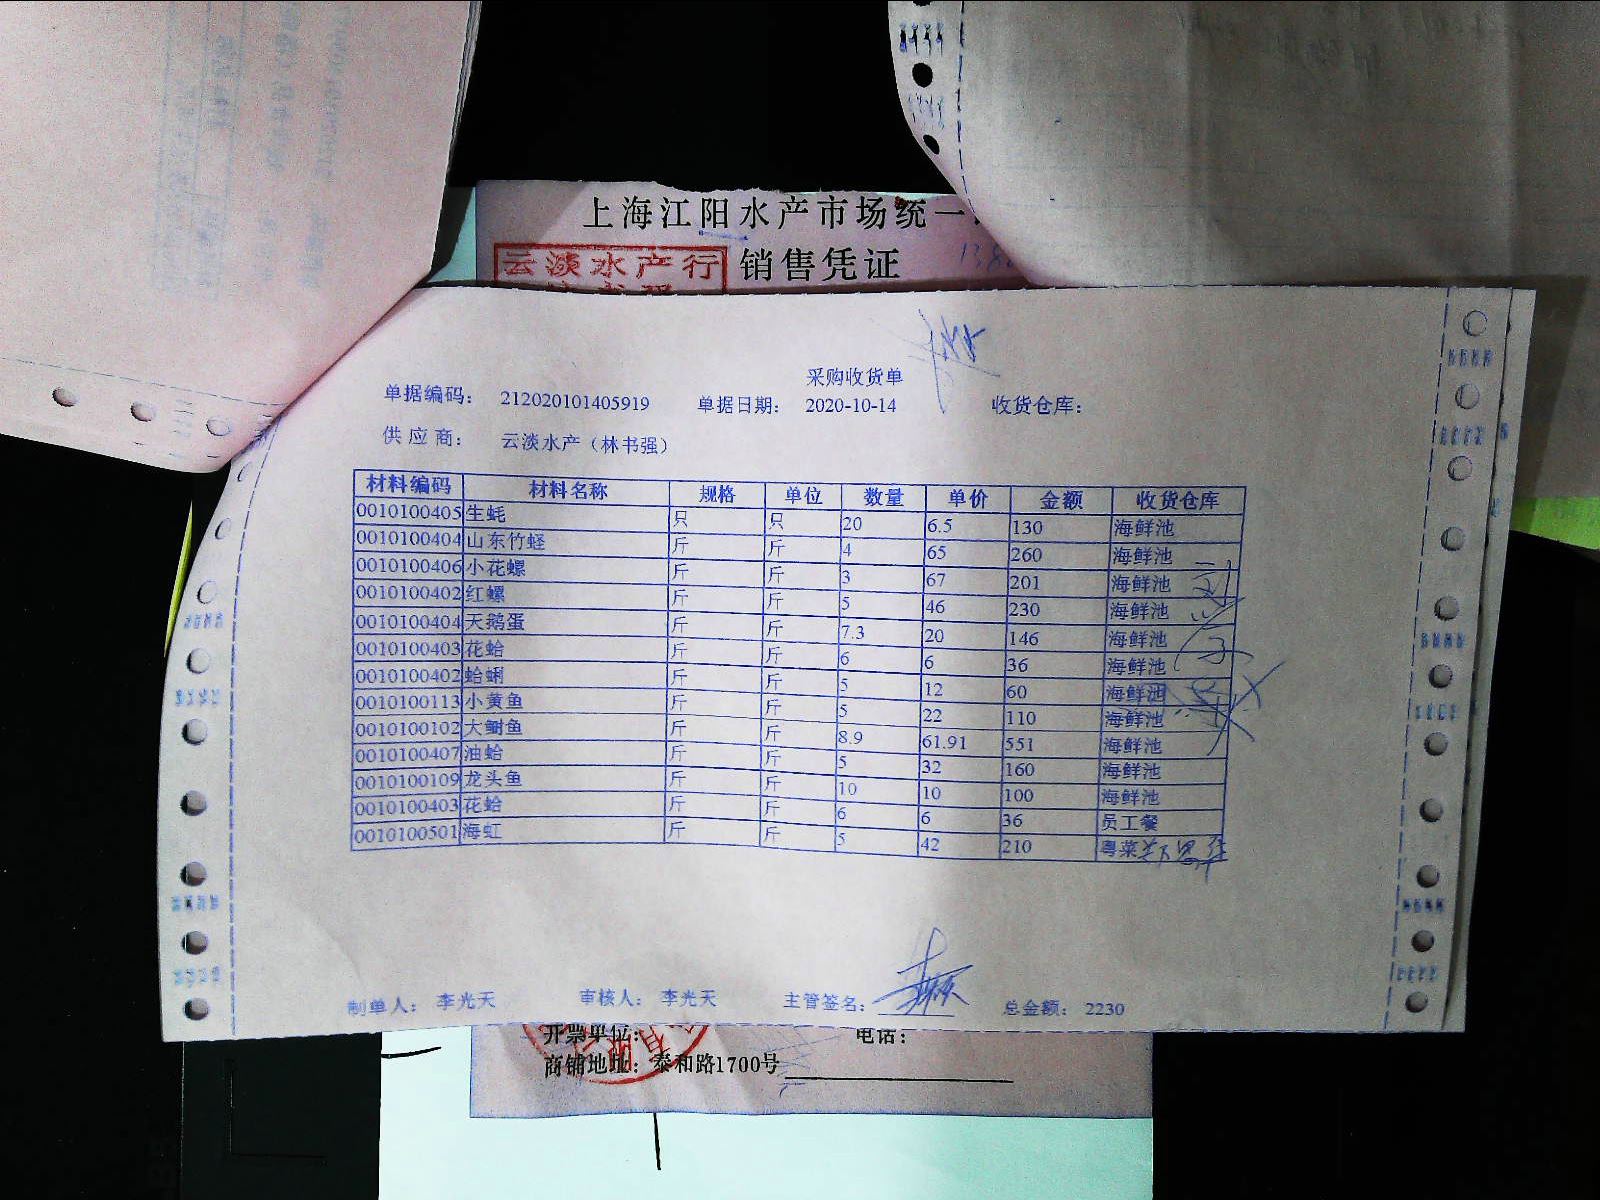 上海江阳水产市场统一
云淡水产行 销售凭证
采购收货单
单据编码: 212020101405919 单据日期: 2020-10-14 收货仓库:
供应商: 云淡水产（林书强）
材料编码 材料名称 规格 单位 数量 单价 金额 收货仓库
0010100405 生蚝 只 只 20 6.5 130 海鲜池
0010100404 山东竹蛏 斤 斤 4 65 260 海鲜池
0010100406 小花螺 斤 斤 3 67 201 海鲜池
0010100402 红螺 斤 斤 5 46 230 海鲜池
0010100404 天鹅蛋 斤 斤 7.3 20 146 海鲜池
0010100403 花蛤 斤 斤 6 6 36 海鲜池
0010100402 蛤蜊 斤 斤 5 12 60 海鲜池
0010100113 小黄鱼 斤 斤 5 22 110 海鲜池
0010100102 大鲥鱼 斤 斤 8.9 61.91 551 海鲜池
0010100407 油蛤 斤 斤 5 32 160 海鲜池
0010100109 龙头鱼 斤 斤 10 10 100 海鲜池
0010100403 花蛤 斤 斤 6 6 36 员工餐
0010100501 海虹 斤 斤 5 42 210 粤菜
制单人: 李光天 审核人: 李光天 主管签名: 总金额: 2230
开票单位: 电话:
商铺地址: 泰和路1700号